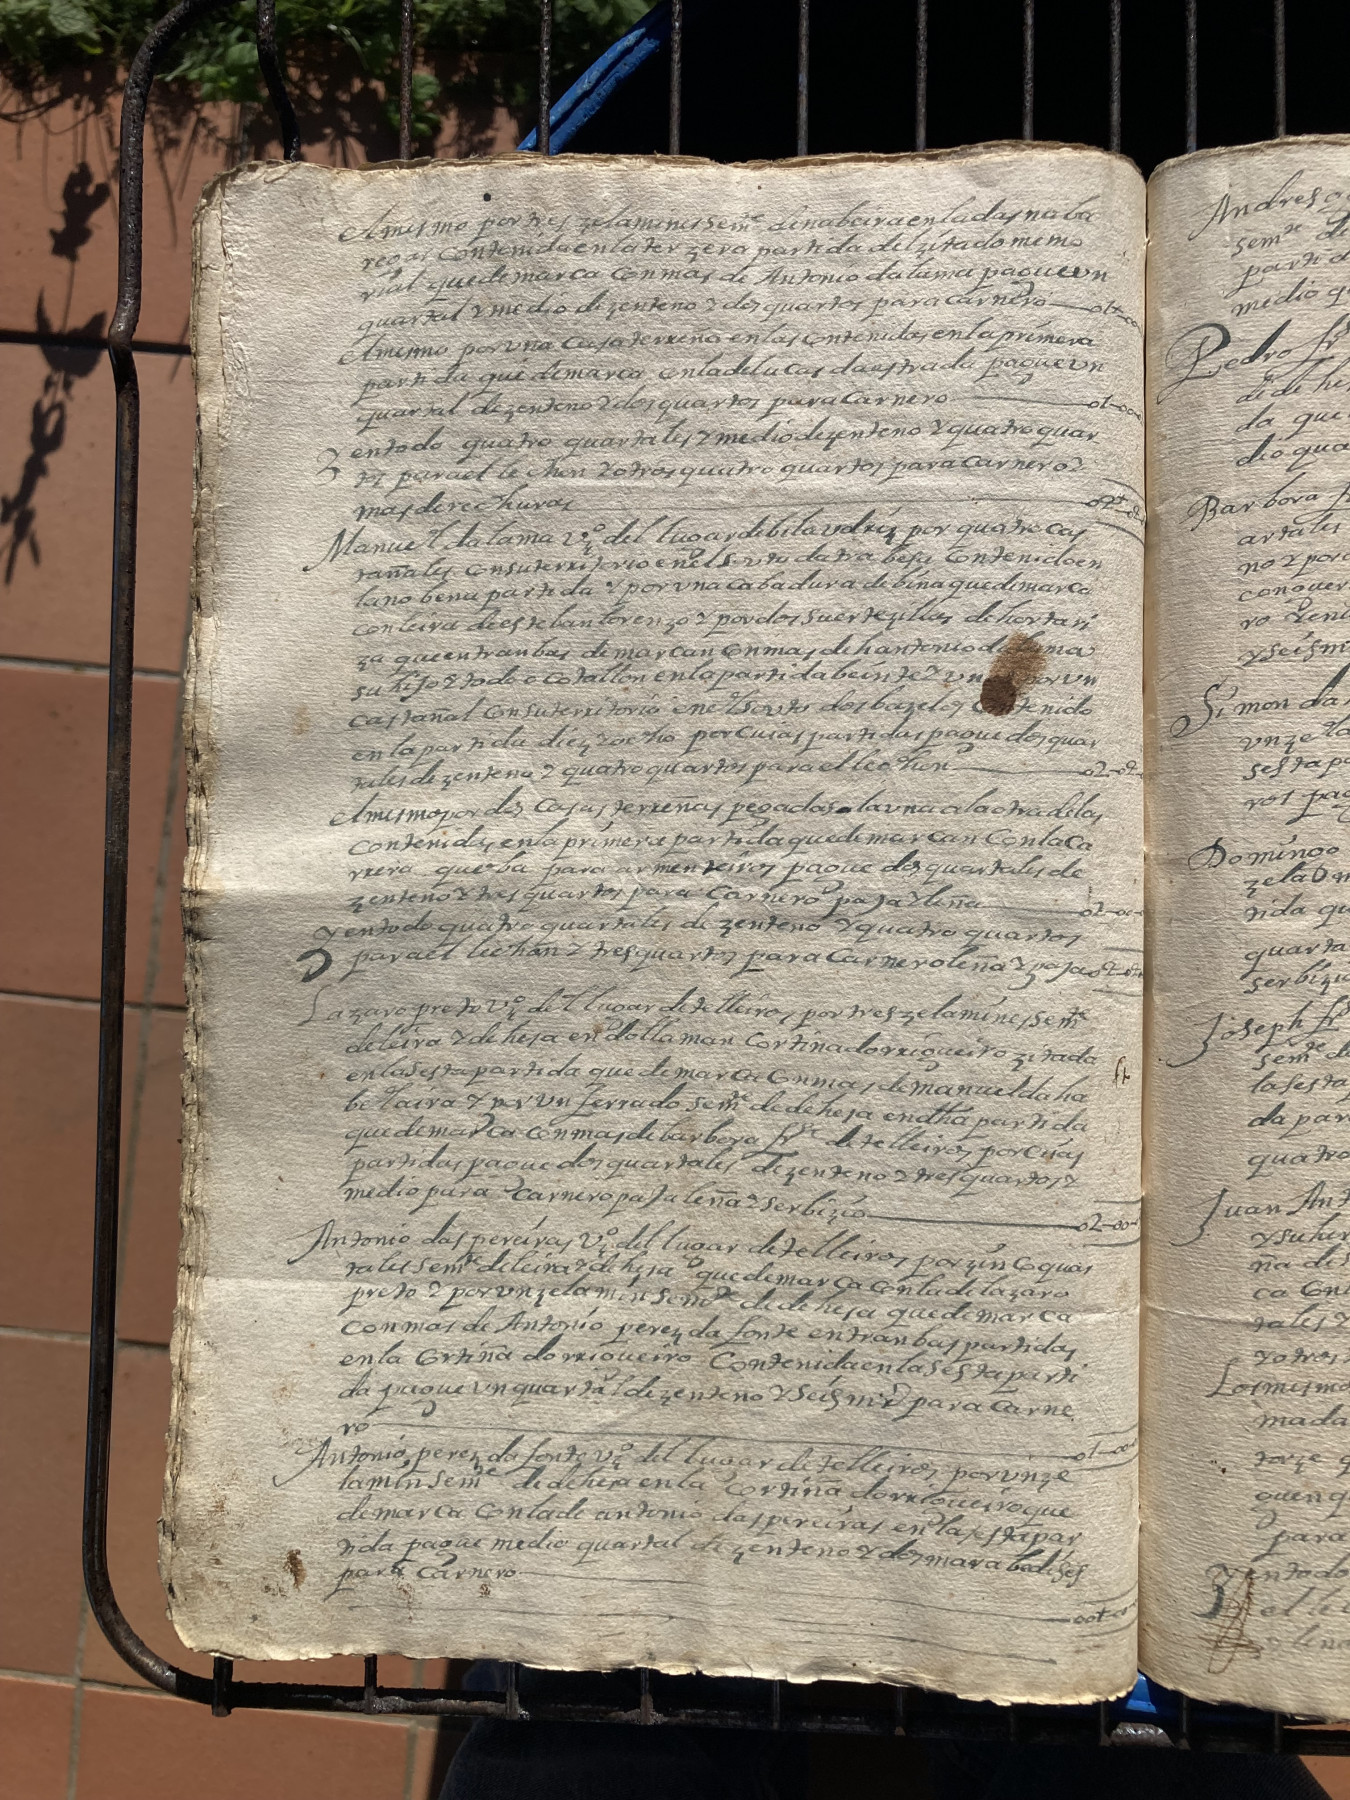 el mismo por tres zelamines semᵉ de nabeira en las da naba
rega contenida en la terzera partida del zitado memo
rial que demarca con mas de Antonio da lama pague un
quartal y medio de zenteno y dos quartos para carnero
el mismo por una casa terreña en las contenidas en la primera
partida que demarca con la de lucas da estrada pague un
quartal de zenteno y dos quartos para carnero
y en todo quatro quartales y medio de zenteno y quatro quar
tos para el lechon y otros quatro quartos para carnero y
mas derechuras
Manuel da lama vº del lugar de bilaudriz por quatro cas
tañales con su territorio en el souto da trabesa contenido en
la nobena partida y por una cabadura de biña que demarca
con leira de esteban lorenzo y por dos suertezillas de hortari
za que entranbas demarcan con mas de hantonio da lama
su hijo y todo o cotallon en la partida beinte y un por un
castañal con su territorio en el souto dos bazelos contenido
en la partida diez y ocho por cuias partidas pague dos quar
tales de zenteno y quatro quartos para el lechon
el mismo por dos casas terreñas pegadas la una a la otra de las
contenidas en la primera partida que demarcan con la ca
rrera que ba para armenteiros pague dos quartales de
zenteno y tres quartos para carnero paja y leña
y en todo quatro quartales de zenteno y quatro quartos
para el lechon y tres quartos para carnero leña y paja
Lazaro preto vº del lugar de telleiros por tres zelamines semᵉ
de leira y dehesa en do llaman cortina do rrigueiro zitada
en la sesta partida que demarca con mas de manuel da ha
belaira y por un ferrado semᵉ de dehesa en dha partida
que demarca con mas de barbora frz de telleiros por cuias
partidas pague dos quartales de zenteno y tres quartos y
medio para carnero paja leña y serbizio
Antonio das pereiras vº del lugar de telleiros por zinco quar
tales semᵉ de leira y dehesa que demarca con la de lazaro
preto y por un zelamin semᵉ de dehesa que demarca
con mas de Antonio perez da fonte entranbas partidas
en la cortiña do rrigueiro contenida en la sesta parti
da pague un quartal de zenteno y seis mrs para carne
ro
Antonio perez da fonte vº del lugar de telleiros por un ze
lamin semᵉ de dehesa en la cortiña do rrigueiro que
demarca con la de antonio das pereiras en la sesta par
tida pague medio quartal de zenteno y dos marabedises
para carnero
Andres
semᵉ de
parti d
medio q
Pedro frz
di de he
da que
dio qua
Barbora
artales
no y por
conquer
ro
y seis m
Simon da
unze la
sesta p
ros pag
Domingo
zela
tida qu
quarta
serbizi
Joseph frz
semᵉ de
la sesta
da par
quatro
Juan Ant
y su her
ña de
ca con
tales y
y otros
Los mismo
mada
torze q
quen q
para
y en todo
el le
y leña